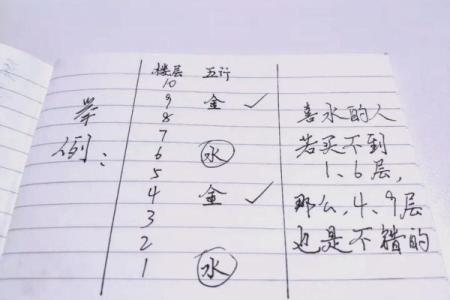 举
例：
楼层 五行
10
9 金 ✓
8
7
6 水
5
4 金 ✓
3
2
1 水
喜水的人
若买不到
1、6层，
那么，4、9层
也是不错的